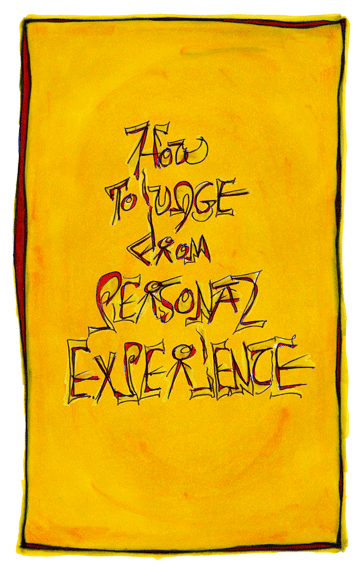 How
To Judge
From
Personal
Experience